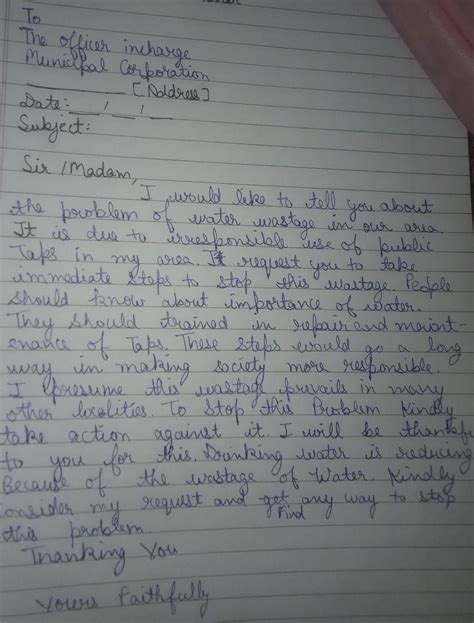 To
The officer incharge
Municipal Corporation
[Address]
Date: __/__/__
Subject:
Sir /Madam,
I would like to tell you about
the problem of water wastage in our area.
It is due to irresponsible use of public
Taps in my area. I request you to take
immediate steps to stop this wastage. People
should know about importance of water.
They should trained in repair and maint-
enance of Taps. These steps would go a long
way in making society more responsible.
I presume this wastage prevails in many
other localities. To Stop this Problem Kindly
take action against it. I will be thankful
to you for this. Drinking water is reducing
Because of the wastage of Water. Kindly
consider my request and get any way to stop
Find
this problem.
Thanking You
Yours Faithfully